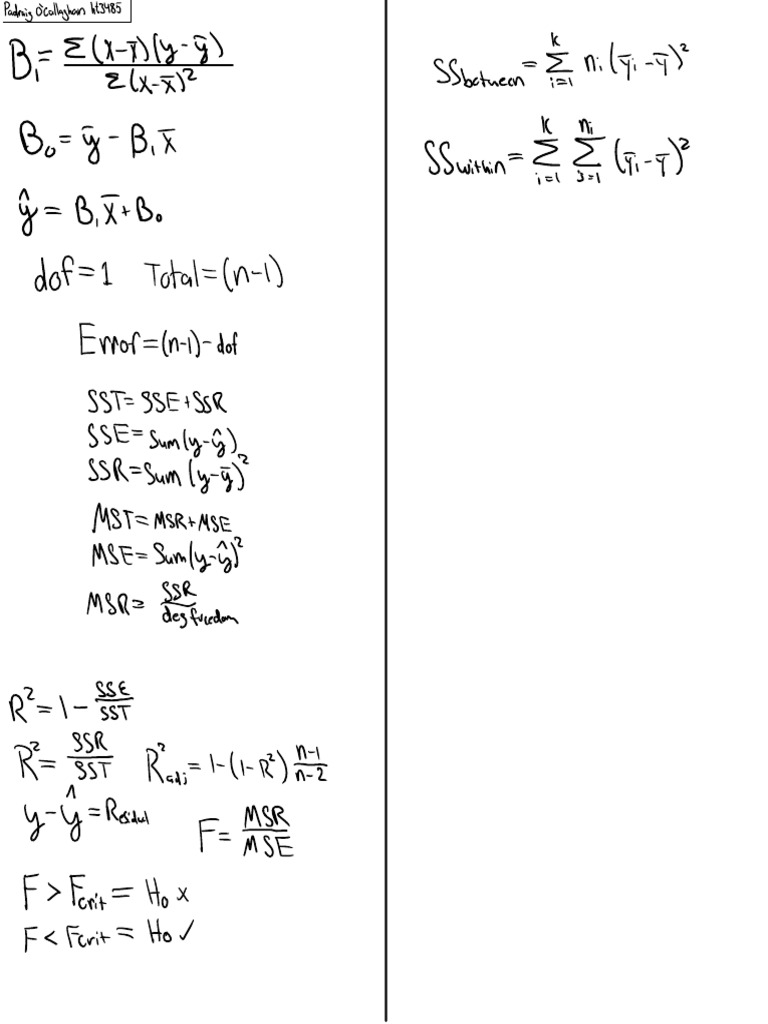 Padraig O'Callaghan
B₁ = Σ(x-x̄)(y-ȳ) / Σ(x-x̄)²
B₀ = ȳ - B₁x̄
ŷ = B₁x̄ + B₀
dof = 1 Total = (n-1)
Error = (n-1) - dof
SST = SSE + SSR
SSE = Sum(y-ŷ)
SSR = Sum(y-ȳ)²
MST = MSR + MSE
MSE = Sum(y-ŷ)²
MSR = SSR / deg freedom
R² = 1 - SSE/SST
R² = SSR/SST R²adj = 1-(1-R²) n-1/n-2
y-ŷ = Residul F = MSR/MSE
F > Fcrit = H₀ x
F < Fcrit = H₀ ✓
SSbetween = Σ k i=1 nᵢ(ȳᵢ-ȳ)²
SSwithin = Σ k i=1 Σ nᵢ j=1 (ȳᵢ-ȳ)²